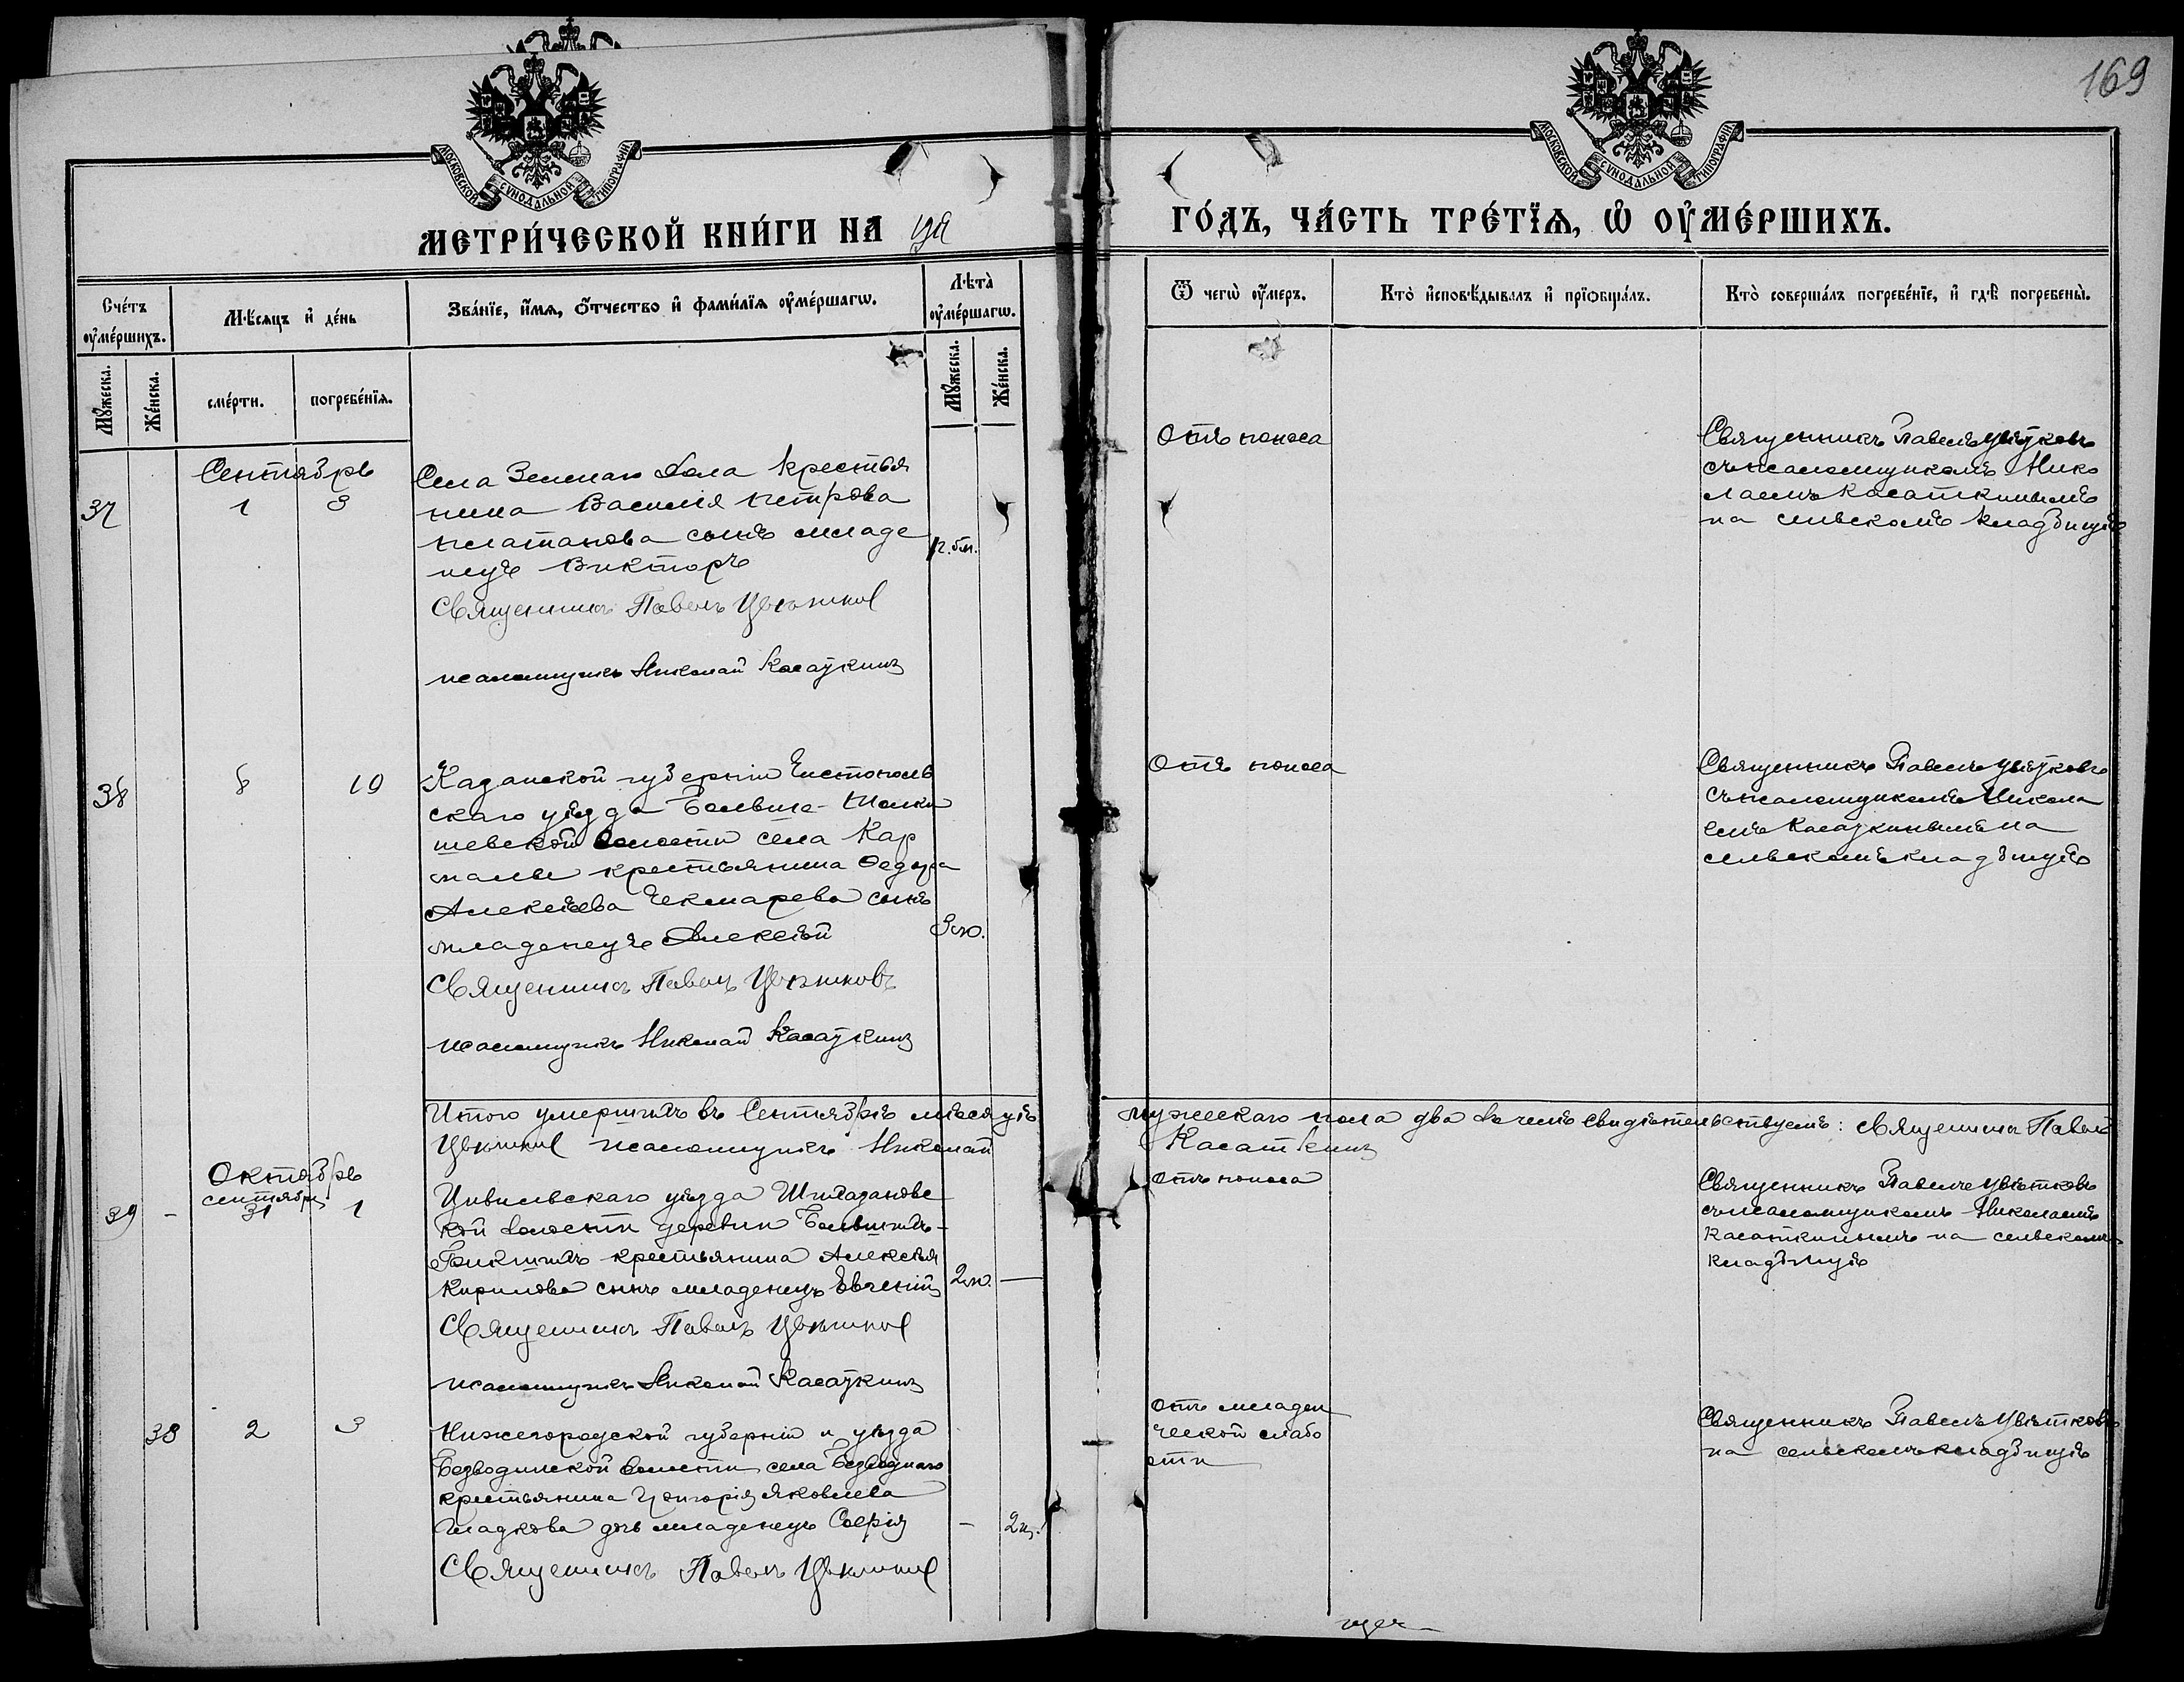 169
МОСКОВСКОЙ СѴНОДАЛЬНОЙ ТИПОГРАФІИ
МОСКОВСКОЙ СѴНОДАЛЬНОЙ ТИПОГРАФІИ
МЕТРИ́ЧЕСКОЙ КНИ́ГИ НА
ГО́ДЪ, ЧА́СТЬ ТРЕ́ТЇѦ, Ѡ҆ ОУ҆МЕ́РШИХЪ.
Сче́тъ оу҆ме́ршихъ.
Мѣ́сяцъ и҆ де́нь
Зва́нїе, и҆́мѧ, ѻ҆́тчество и҆ фами́лїѧ оу҆ме́ршагѡ.
Лѣта̀ оу҆ме́ршагѡ.
Ѿ чегѡ̀ оу҆́меръ.
Кто̀ и҆сповѣ́дывалъ и҆ прїѡбща́лъ.
Кто̀ соверша́лъ погребе́нїе, и҆ гдѣ̀ погребены̀.
Мꙋ́жеска.
Же́нска.
сме́рти.
погребе́нїѧ.
Мꙋ́жеска.
Же́нска.
Сентябрь
37 1 3
Села Зеленаго Дола крестья
нина Василія Петрова
Платонова сынъ младе
нецъ Викторъ
1г. 5м.
Священникъ Павелъ Цвѣтковъ
псаломщикъ Николай Касаткинъ
Отъ поноса
Священникъ Павелъ Цвѣтковъ
съ псаломщикомъ Нико
лаемъ Касаткинымъ
на сельскомъ кладбищѣ
38 8 10
Казанской губерніи Чистополь
скаго уѣзда Больше-Толки
шевской волости села Кар
малы крестьянина Федора
Алексѣева Чекмарева сынъ
младенецъ Алексѣй
3м.
Священникъ Павелъ Цвѣтковъ
псаломщикъ Николай Касаткинъ
Отъ поноса
Священникъ Павелъ Цвѣтковъ
съ псаломщикомъ Никола
емъ Касаткинымъ на
сельскомъ кладбищѣ
Итого умершихъ въ Сентябрѣ мѣсяцѣ мужескаго пола два въ чемъ свидѣтельствуемъ: Священникъ Павелъ
Цвѣтковъ псаломщикъ Николай Касаткинъ
Октябрь
сентября
39 - 31 1
Цивильскаго уѣзда
кой волости деревни Большихъ-
крестьянина Алексѣя
Кирилова сынъ младенецъ Евгеній
2м. —
Священникъ Павелъ Цвѣтковъ
псаломщикъ Николай Касаткинъ
Отъ поноса
Священникъ Павелъ Цвѣтковъ
съ псаломщикомъ Николаемъ
Касаткинымъ на сельскомъ
кладбищѣ
38 2 3
Нижегородской губерніи и уѣзда
Безводинской волости села Безводнаго
крестьянина Григорія Яковлева
Гладкова дочь младенецъ Софія
- 2н.
Священникъ Павелъ Цвѣтковъ
Отъ младен
ческой слабо
сти
Священникъ Павелъ Цвѣтковъ
на сельскомъ кладбищѣ